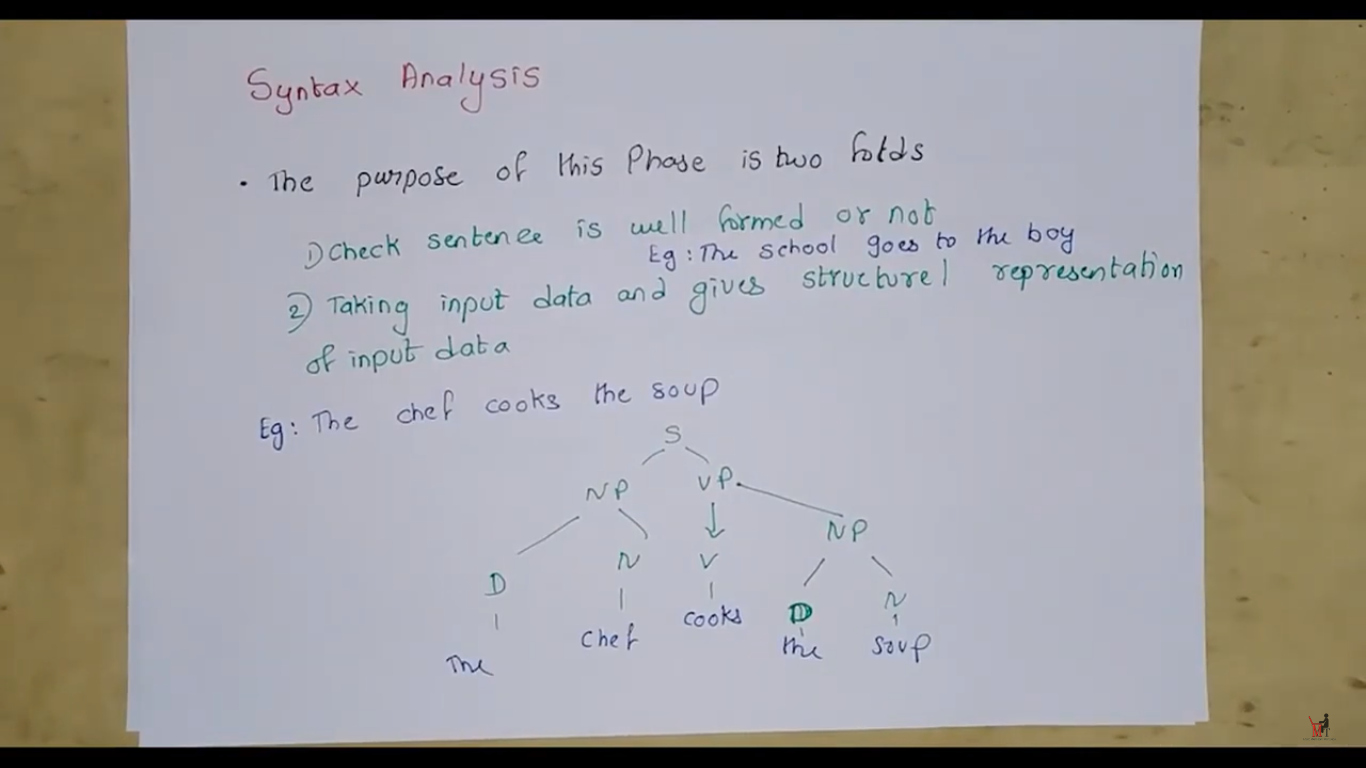 Syntax Analysis
• The purpose of this Phase is two folds
1) Check sentence is well formed or not
Eg: The school goes to the boy
2) Taking input data and gives structurel representation
of input data
Eg: The chef cooks the soup
S
NP VP
NP
D N V
D N
The chef cooks the soup